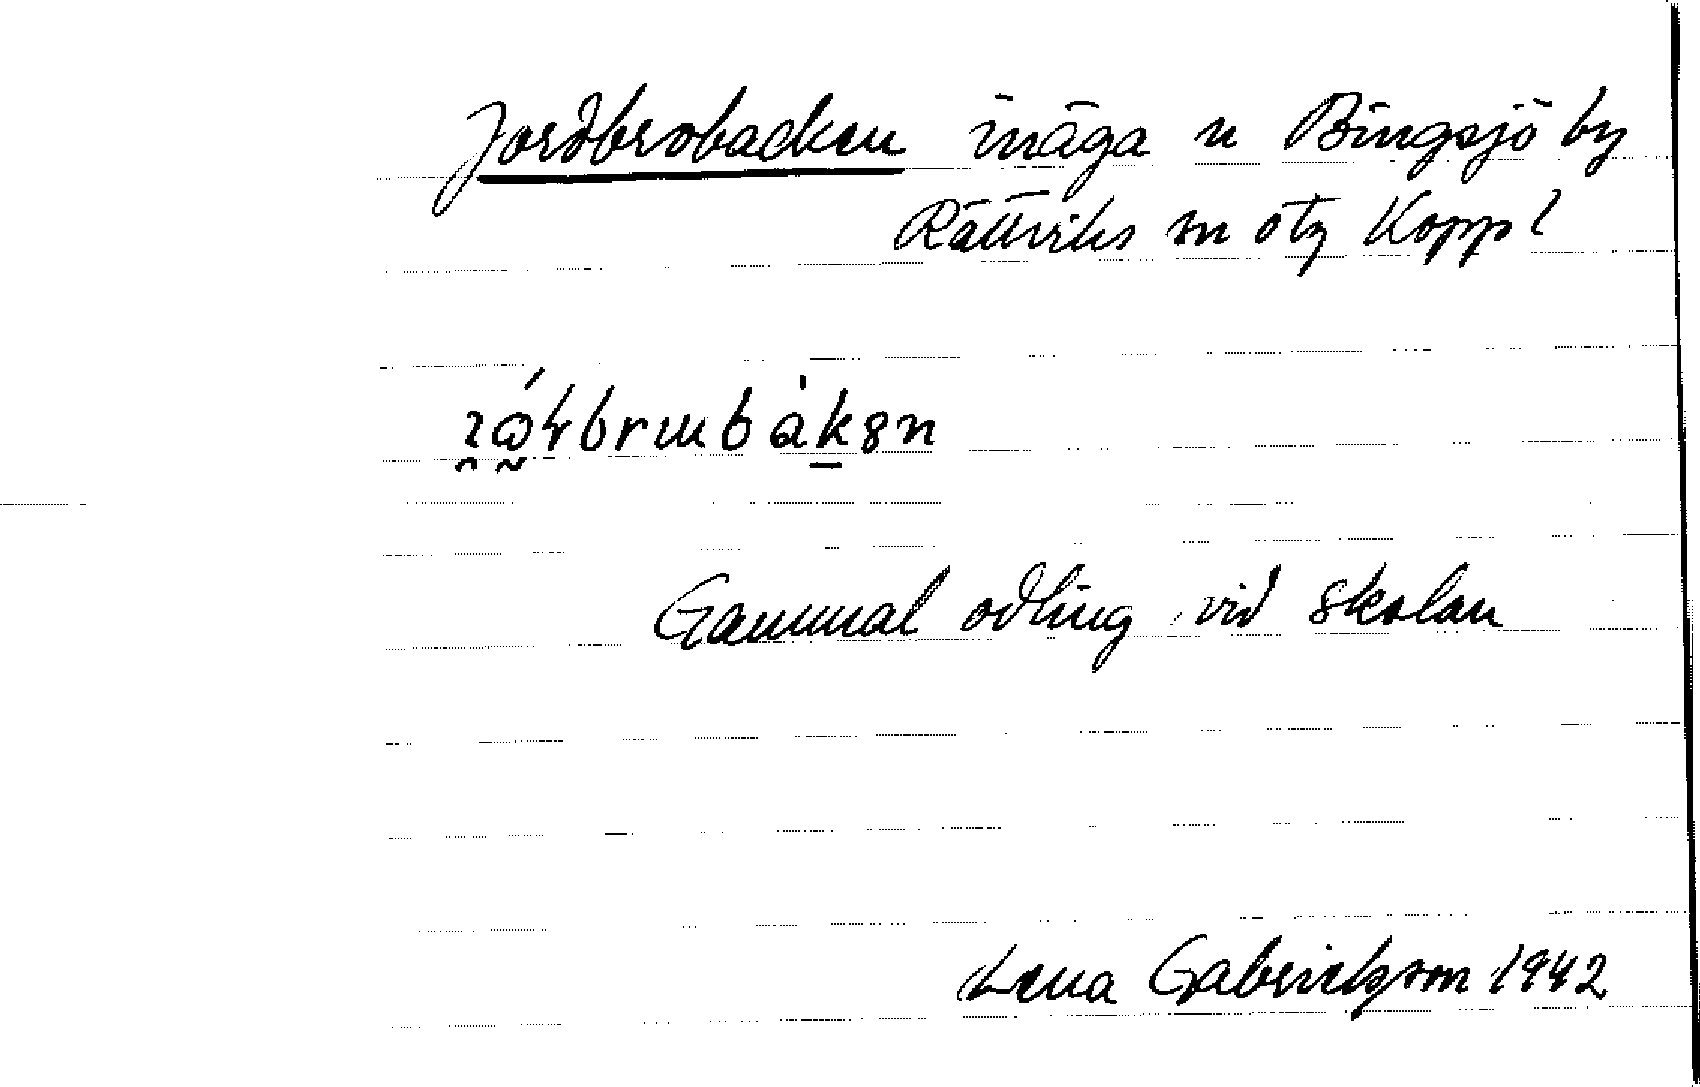 Jordbrobacken inäga n Bingsjö by
Rättviks sn ötg Kopp l
Gammal odling vid skolan
Lena Gabrielsson 1942